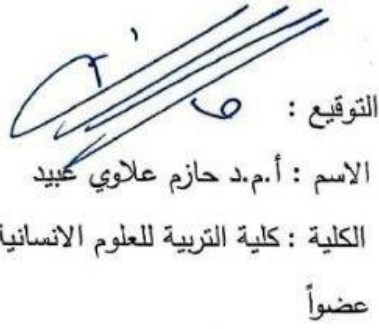 التوقيع :
الاسم : أ.م.د حازم علاوي عبيد
الكلية : كلية التربية للعلوم الانسانية
عضواً